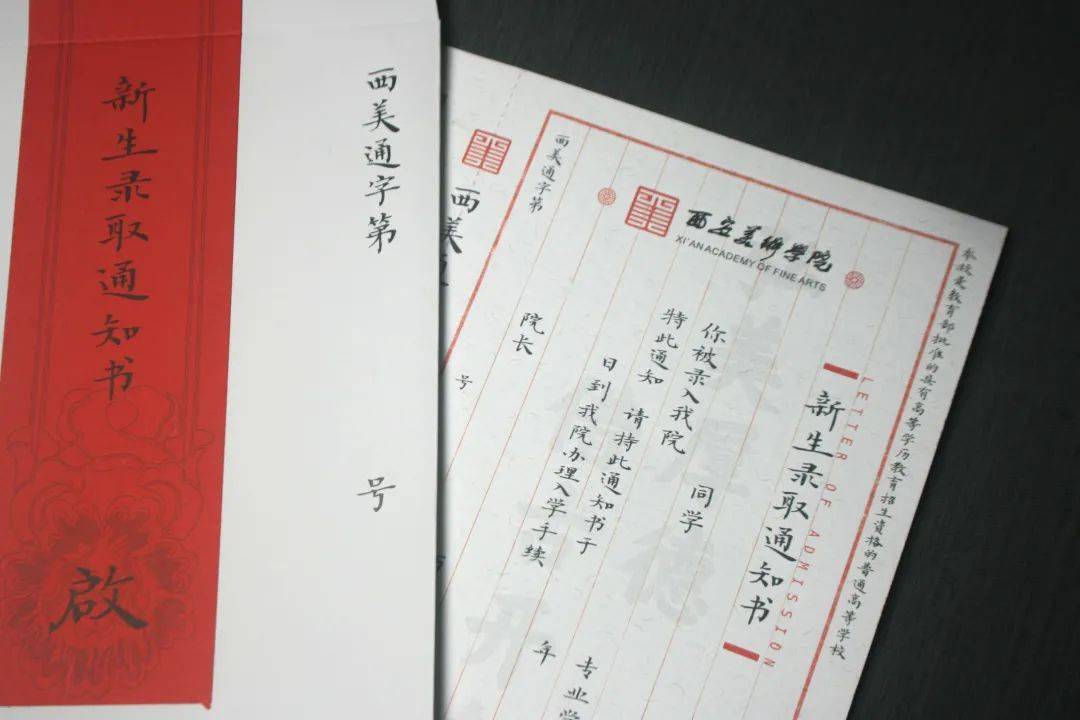 新生录取通知书
啟
西美通字第
号
西美
号
本校是教育部批准的具有高等学历教育招生资格的普通高等学校
西安美术学院
XI'AN ACADEMY OF FINE ARTS
新生录取通知书
LETTER OF ADMISSION
同学
你被录入我院
专业学
特此通知 请持此通知书于
年
日到我院办理入学手续
院长
西美通字第